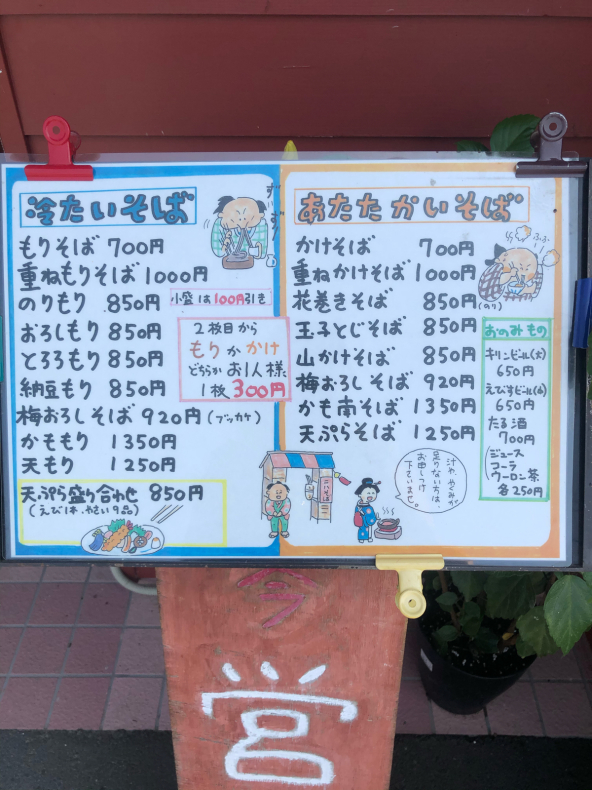 冷たいそば
もりそば 700円
重ねもりそば 1000円
のりもり 850円
小盛は100円引き
おろしもり 850円
とろろもり 850円
納豆もり 850円
梅おろしそば 920円(ブッカケ)
かももり 1350円
天もり 1250円
2枚目から
もりかかけ
どちらかお1人様に
1枚300円
天ぷら盛り合わせ 850円
(えび1本、やさい9品)
あたたかいそば
かけそば 700円
重ねかけそば 1000円
花巻きそば 850円(のり)
玉子とじそば 850円
山かけそば 850円
梅おろしそば 920円
かも南そば 1350円
天ぷらそば 1250円
おのみもの
キリンビール(大)
650円
えびすビール(小)
650円
たる酒
700円
ジュース
コーラ
ウーロン茶
各250円
汁や、やくみが
足りない方は、
お申しつけ
下さいませ。
営